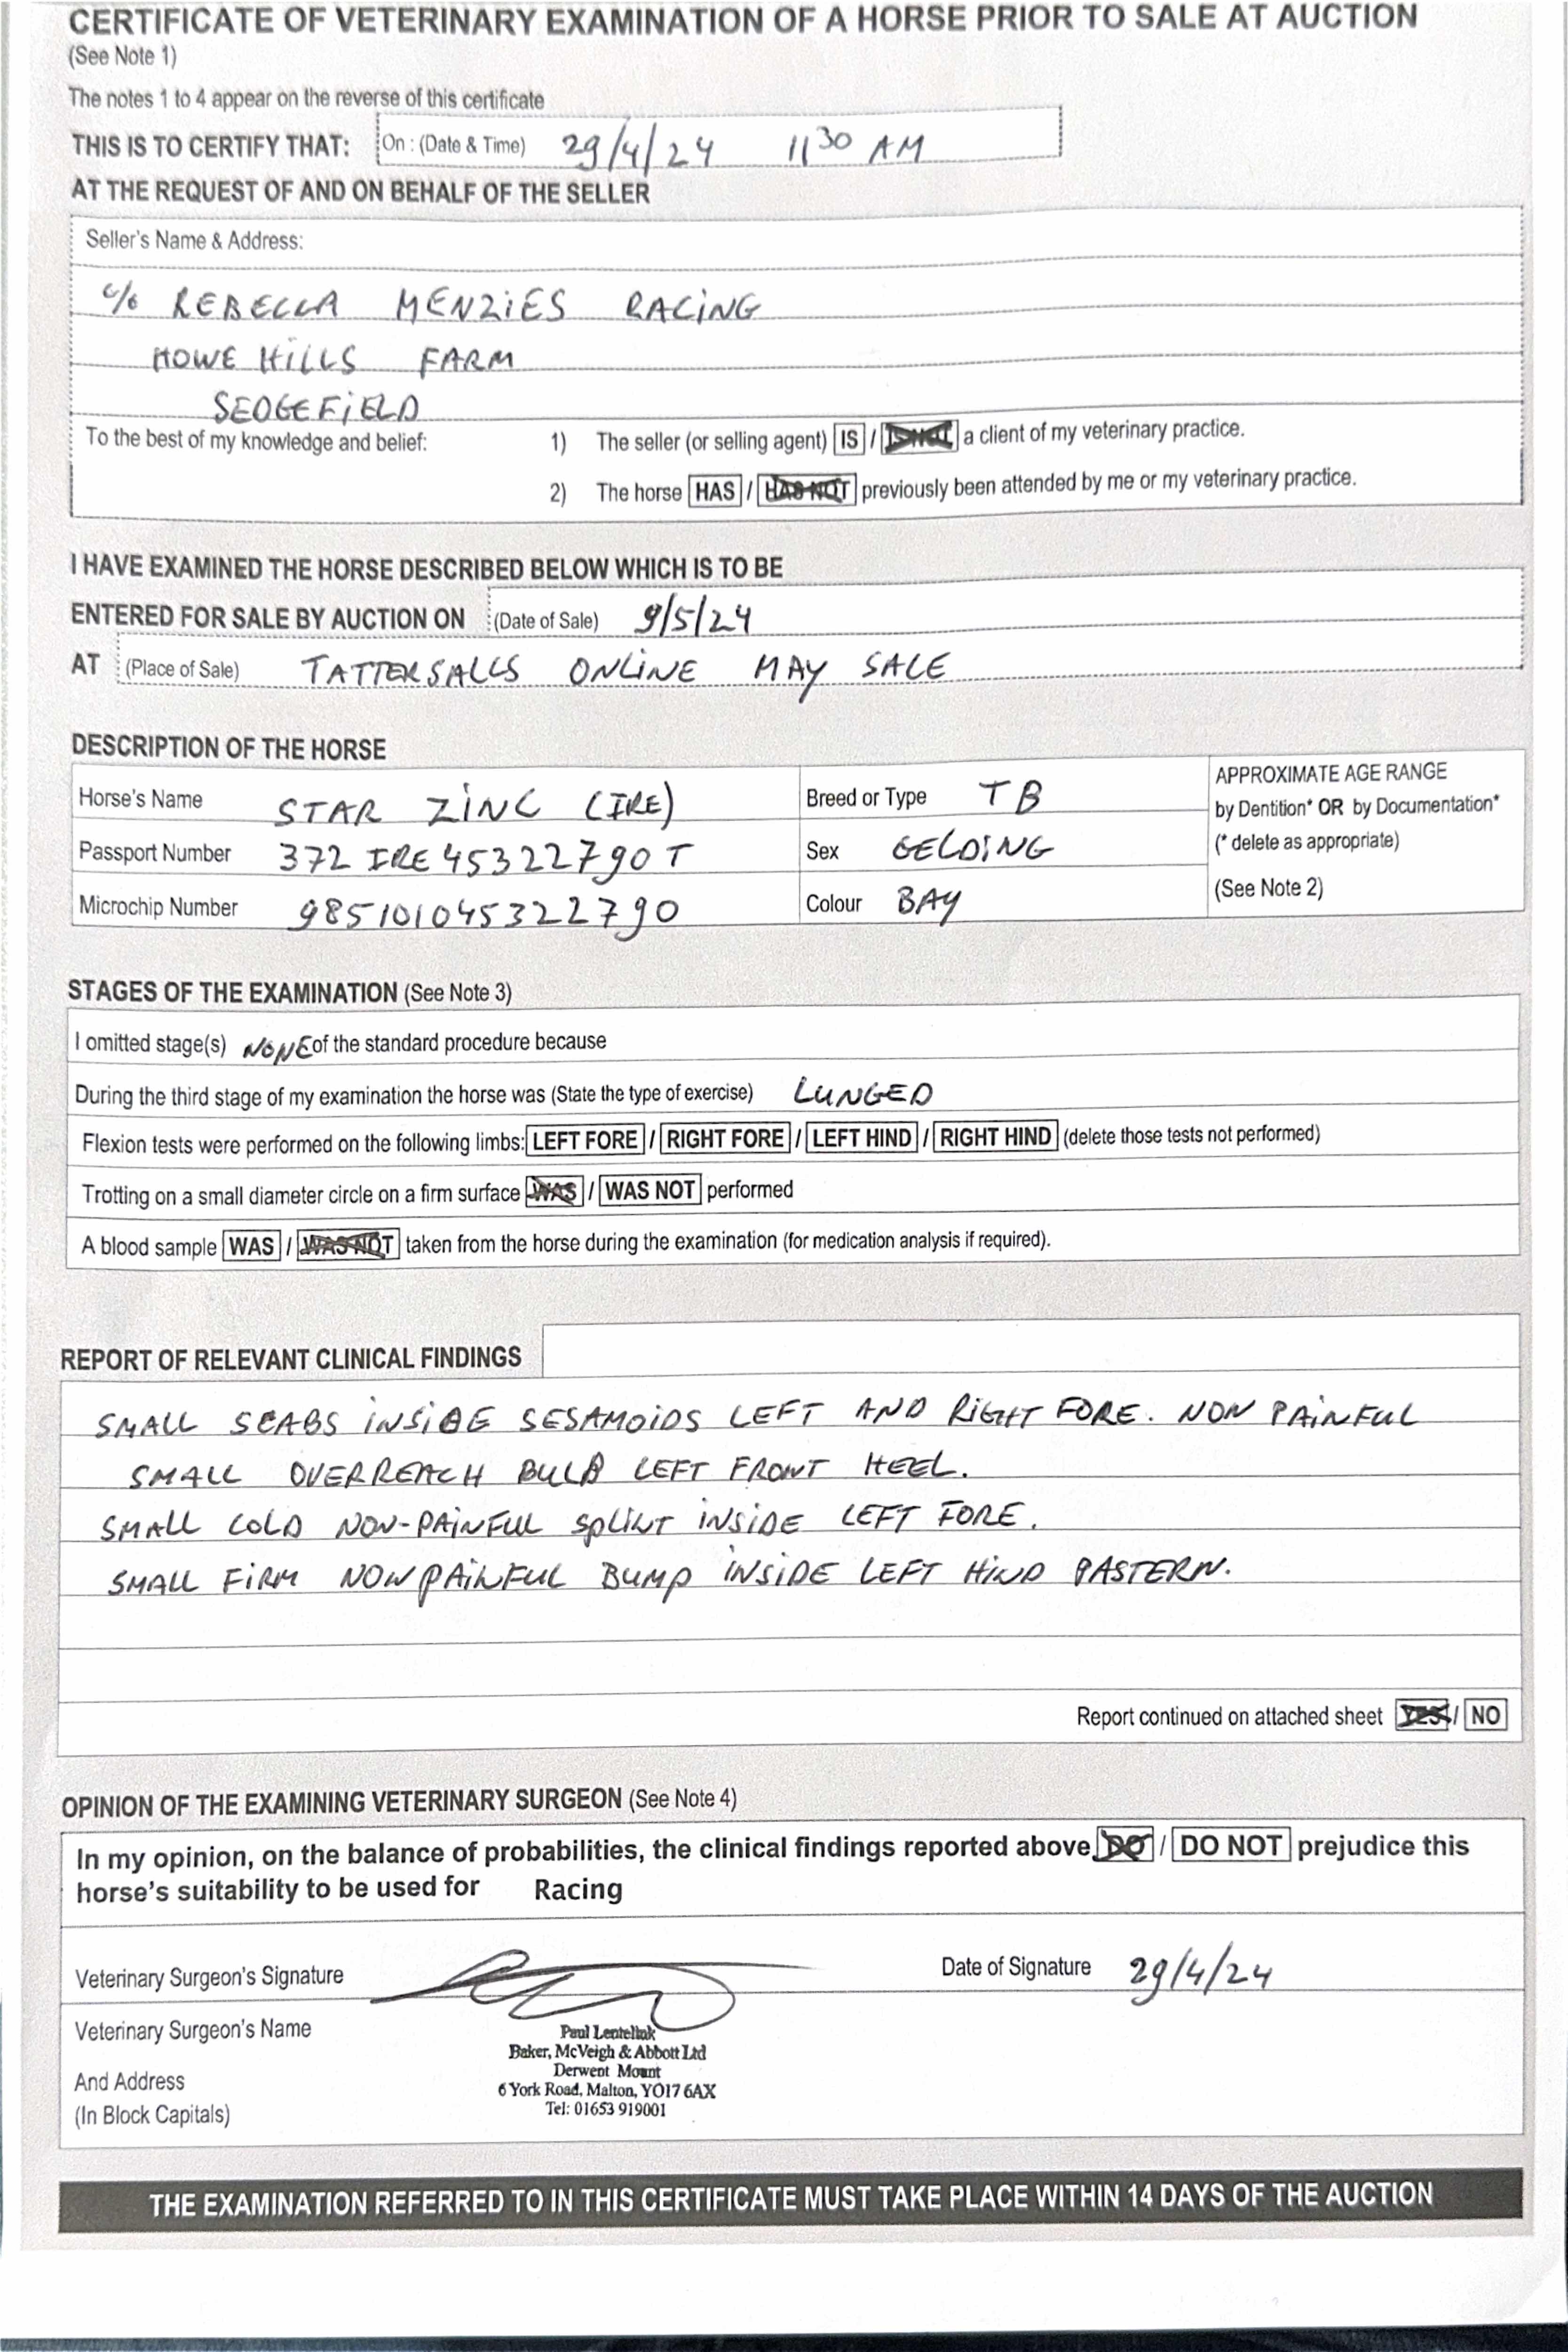 CERTIFICATE OF VETERINARY EXAMINATION OF A HORSE PRIOR TO SALE AT AUCTION
(See Note 1)
The notes 1 to 4 appear on the reverse of this certificate
THIS IS TO CERTIFY THAT: On : (Date & Time) 29/4/24 11 30 AM
AT THE REQUEST OF AND ON BEHALF OF THE SELLER
Seller's Name & Address:
c/o REBECCA MENZIES RACING
HOWE HILLS FARM
SEDGEFIELD
To the best of my knowledge and belief: 1) The seller (or selling agent) IS / IS NOT a client of my veterinary practice.
2) The horse HAS / HAS NOT previously been attended by me or my veterinary practice.
I HAVE EXAMINED THE HORSE DESCRIBED BELOW WHICH IS TO BE
ENTERED FOR SALE BY AUCTION ON (Date of Sale) 9/5/24
AT (Place of Sale) TATTERSALLS ONLINE MAY SALE
DESCRIPTION OF THE HORSE
Horse's Name STAR ZINC (IRE) Breed or Type TB APPROXIMATE AGE RANGE
by Dentition* OR by Documentation*
Passport Number 372 IRE 45322790 T Sex GELDING (* delete as appropriate)
Microchip Number 985101045322790 Colour BAY (See Note 2)
STAGES OF THE EXAMINATION (See Note 3)
I omitted stage(s) NONE of the standard procedure because
During the third stage of my examination the horse was (State the type of exercise) LUNGED
Flexion tests were performed on the following limbs: LEFT FORE / RIGHT FORE / LEFT HIND / RIGHT HIND (delete those tests not performed)
Trotting on a small diameter circle on a firm surface WAS / WAS NOT performed
A blood sample WAS / WAS NOT taken from the horse during the examination (for medication analysis if required).
REPORT OF RELEVANT CLINICAL FINDINGS
SMALL SCABS INSIDE SESAMOIDS LEFT AND RIGHT FORE. NON PAINFUL
SMALL OVERREACH BULB LEFT FRONT HEEL.
SMALL COLD NON-PAINFUL SPLINT INSIDE LEFT FORE.
SMALL FIRM NON PAINFUL BUMP INSIDE LEFT HIND PASTERN.
Report continued on attached sheet YES / NO
OPINION OF THE EXAMINING VETERINARY SURGEON (See Note 4)
In my opinion, on the balance of probabilities, the clinical findings reported above DO / DO NOT prejudice this
horse's suitability to be used for Racing
Veterinary Surgeon's Signature Date of Signature 29/4/24
Veterinary Surgeon's Name
Paul Lentelink
Baker, McVeigh & Abbott Ltd
Derwent Mount
And Address
6 York Road, Malton, YO17 6AX
(In Block Capitals)
Tel: 01653 919001
THE EXAMINATION REFERRED TO IN THIS CERTIFICATE MUST TAKE PLACE WITHIN 14 DAYS OF THE AUCTION